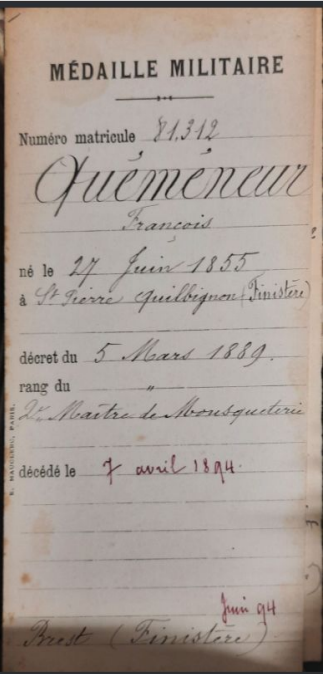 MÉDAILLE MILITAIRE
Numéro matricule 81,312
Quéméneur
François
né le 27 Juin 1855
à St Pierre Quilbignon (Finistère)
décret du 5 Mars 1889.
rang du "
2d Maître de Mousqueterie
décédé le 7 avril 1894.
Juin 94
Brest (Finistère)